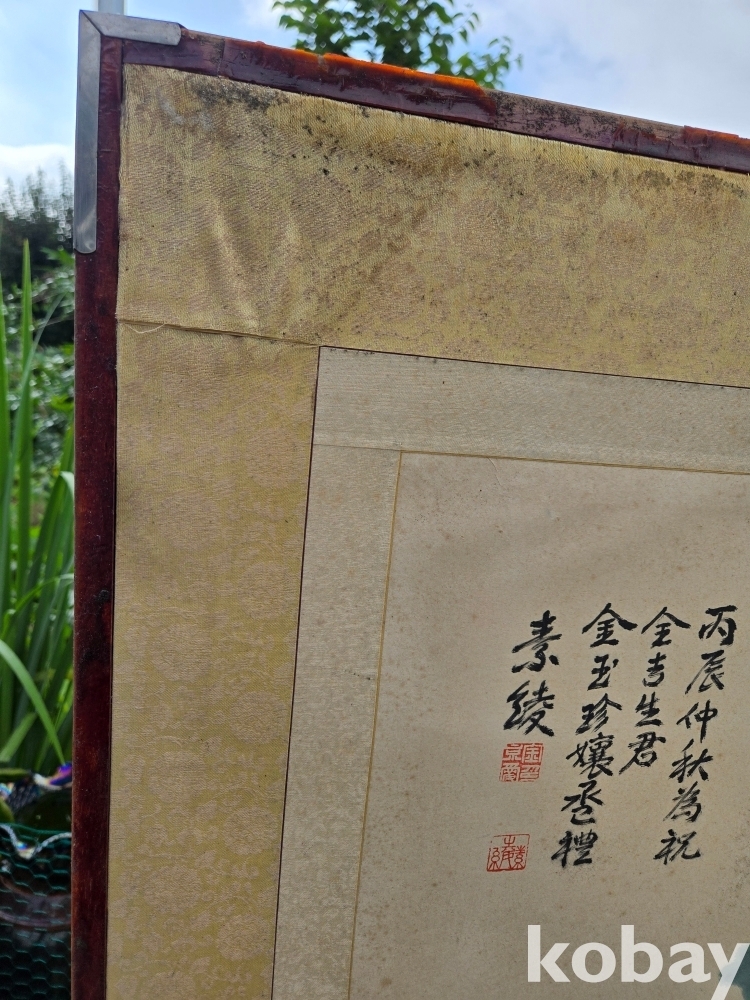 丙辰仲秋為祝
全吉生君
金玉珍孃 禮
素綾
素綾
kobay